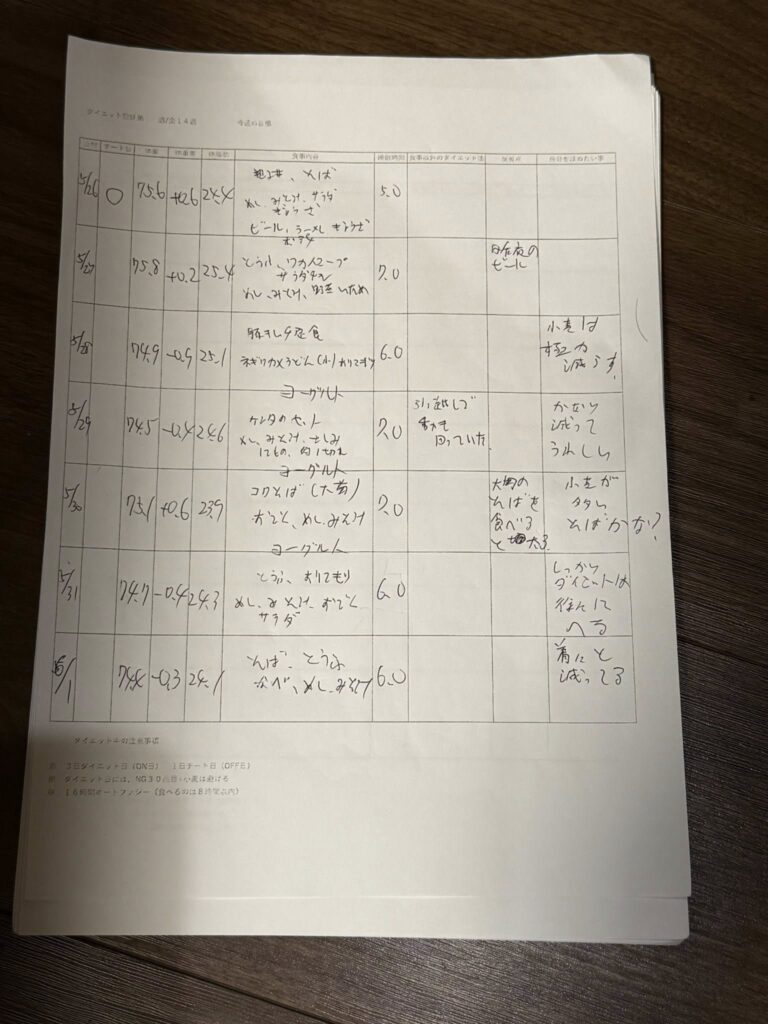 ダイエット記録表 週/全14週 今週の目標
日付 チート日 体重 体重差 体脂肪 食事内容 睡眠時間 食事以外のダイエット法 反省点 自分をほめたい事
5/26 ○ 75.6 +0.6 24.4
そば
めし、みそ汁、サラダ
ぎょうざ
ビール、ラーメン ぎょうざ
ポテト
5.0
5/27 75.8 +0.2 25.4
とうふ、ワカメスープ
サラダチキン
めし、みそ汁、野菜いため
7.0
昨夜の
ビール
5/28 74.9 -0.9 25.1
定食
ネギワカメうどん(小)おりてもり
ヨーグルト
6.0
小麦は
極力
減らす。
5/29 74.5 -0.4 24.6
ケンタのセット
めし、みそ汁、さしみ
にもの、肉1切れ
ヨーグルト
7.0
引越しで
動き
回っていた
かなり
減って
うれしい
5/30 75.1 +0.6 23.9
コロそば(大盛)
おでん、めし、みそ汁
ヨーグルト
7.0
大盛の
そばを
食べる
と 太る
小麦が
多い
そばかな?
5/31 74.7 -0.4 24.3
とうふ、おりてもり
めし、みそ汁、おでん
サラダ
6.0
しっかり
ダイエットは
徐々に
へる
6/1 74.4 -0.3 24.1
そば、とうふ
なべ、めし、みそ汁
6.0
着々と
減ってる
ダイエット中の注意事項
3日ダイエット日(ON日) 1日チート日(OFF日)
ダイエット日には、NG30品目・小麦は避ける
16時間オートファジー(食べるのは8時間以内)